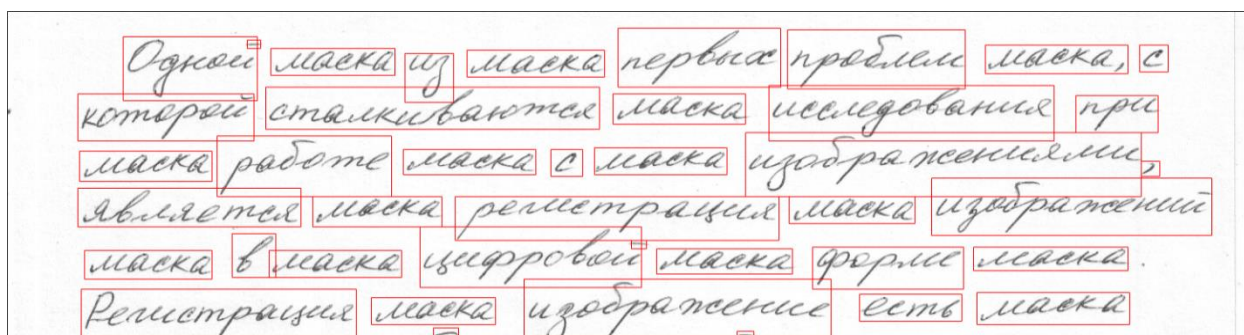 Одной маска из маска первых проблем маска, с
которой сталкиваются маска исследования при
маска работе маска с маска изображениями,
является маска регистрация маска изображений
маска в маска цифровой маска форме маска.
Регистрация маска изображение есть маска